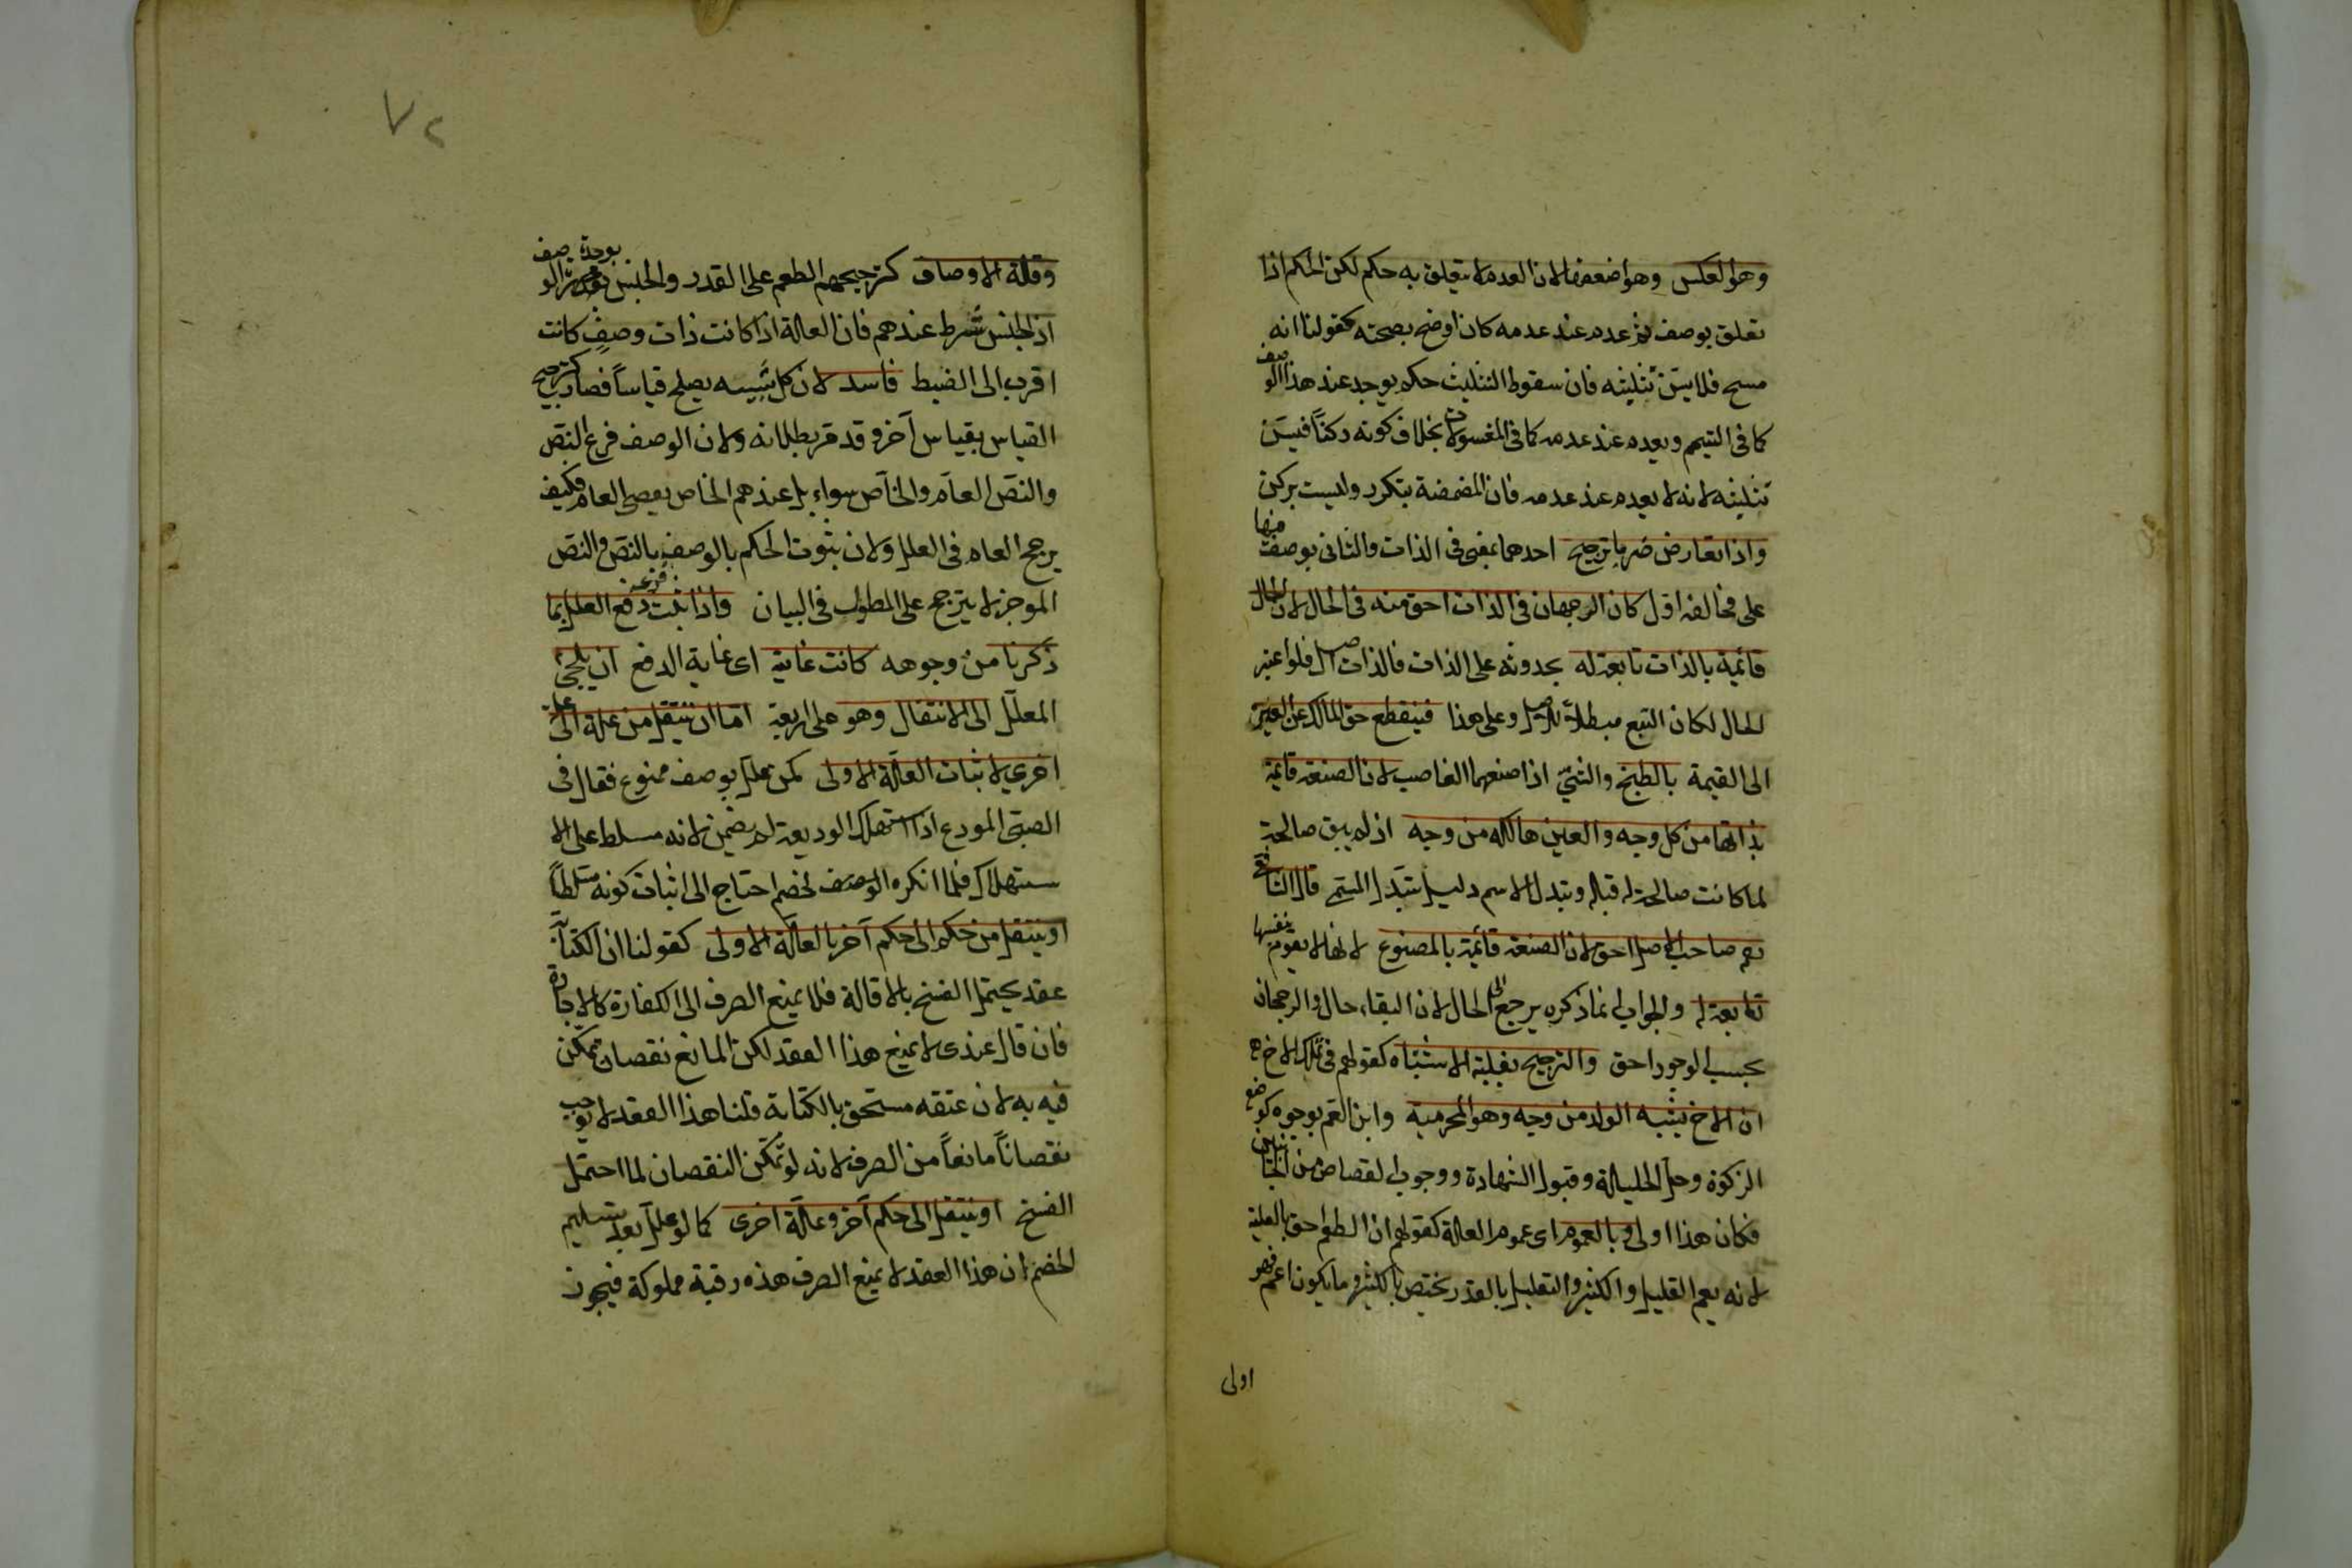 وهو العكس وهو اضعفها لان العدم لا يتعلق به حكم لكن الحكم اذا
تعلق بوصف ثم عدم عند عدمه كان اوضح بصحته كقولنا انه
مسح فلا يسن تثليثه فان سقوط التثليث حكم يوجد عند هذا الوصف
كما فى التيمم ويعدم عند عدمه كما فى المغسولات بخلاف كونه ركناً فيسن
تثليثه لانه لا يعدم عند عدمه فان المضمضة يتكرر وليست بركن
واذا تعارض ضربا ترجيح احدهما بمعنى فى الذات والثانى بوصف منها
على مخالفه اول كان الرجحان فى الذات احق منه فى الحال لان الحال
قائمة بالذات تابعة له بحدوثه على الذات فالذات اصل فلو اعتبر
الحال لكان التبع مبطلاً للاصل وعلى هذا فينقطع حق المالك عن العين
الى القيمة بالطبخ والشىّ اذا صنعهما الغاصب لان الصنعة قائمة
بذاتها من كل وجه والعين هالكه من وجه اذ لم يبق صالحة
لما كانت صالحة له قبله وتبدل الاسم دليل تبدل المسمى قال الشافعى
رحم صاحب الاصل احق لان الصنعة قائمة بالمصنوع لانها لا يقوم بنفسها
تابعة له والجواب ان ما ذكره يرجع الى الحال لان البقاء حال والرجحان
بحسب الوجود احق والترجيح بغلبة الاشتباه كقولهم فى تملك الاخ
ان الاخ يشبه الولد من وجه وهو المحرمية وابن العم بوجوه كوضع
الزكوة وحل الحليلة وقبول الشهادة ووجوب القصاص من الجانبين
فكان هذا اولى وبالعموم اى عموم العلة كقولهم ان الطعم احق بالعلية
لانه يعم القليل والكثير والتعليل بالقدر يختص بالكثير وما يكون اعم فهو
اولى
٧٢
وقلة الاوصاف كترجيحهم الطعم على القدر والجنس بوحدة الوصف
اذ الجنس شرط عندهم فان العلة اذا كانت ذات وصف كانت
اقرب الى الضبط فاسد لان كل شبيه يصلح قياساً فصار كترجيح
القياس بقياس آخر وقد مر بطلانه ولان الوصف فرع النص
والنص العام والخاص سواء بل عندهم الخاص يقضى العام فكيف
يرجح العام فى العلل ولان ثبوت الحكم بالوصف بالنص والنص
الموجز لا يترجح على المطول فى البيان واذا ثبت دفع العلل بما
ذكرنا من وجوهه كانت غايته اى غاية الدفع ان يلجئ
المعلل الى الانتقال وهو على اربعة اما ان ينتقل من علة الى علة
اخرى لاثبات العلة الاولى كمن علل بوصف ممنوع فقال فى
الصبى المودع اذا استهلك الوديعة لم يضمن لانه مسلط على الا
ستهلاك فلما انكره الخصم احتاج الى اثبات كونه مسلطاً
او ينتقل من حكم الى حكم آخر بالعلة الاولى كقولنا ان الكتابة
عقد يحتمل الفسخ بالاقالة فلا يمنع الصرف الى الكفارة كالاجارة
فان قال عندى لا يمنع هذا العقد لكن المانع نقصان تمكن
فيه به لان عتقه مستحق بالكتابة قلنا هذا العقد لا يوجب
نقصاناً مانعاً من الصرف لانه لو تمكن النقصان لما احتمل
الفسخ او ينتقل الى حكم آخر وعلة اخرى كما لو علل بعد تسليم
الخصم ان هذا العقد لا يمنع الصرف هذه رقبة مملوكة فيجوز